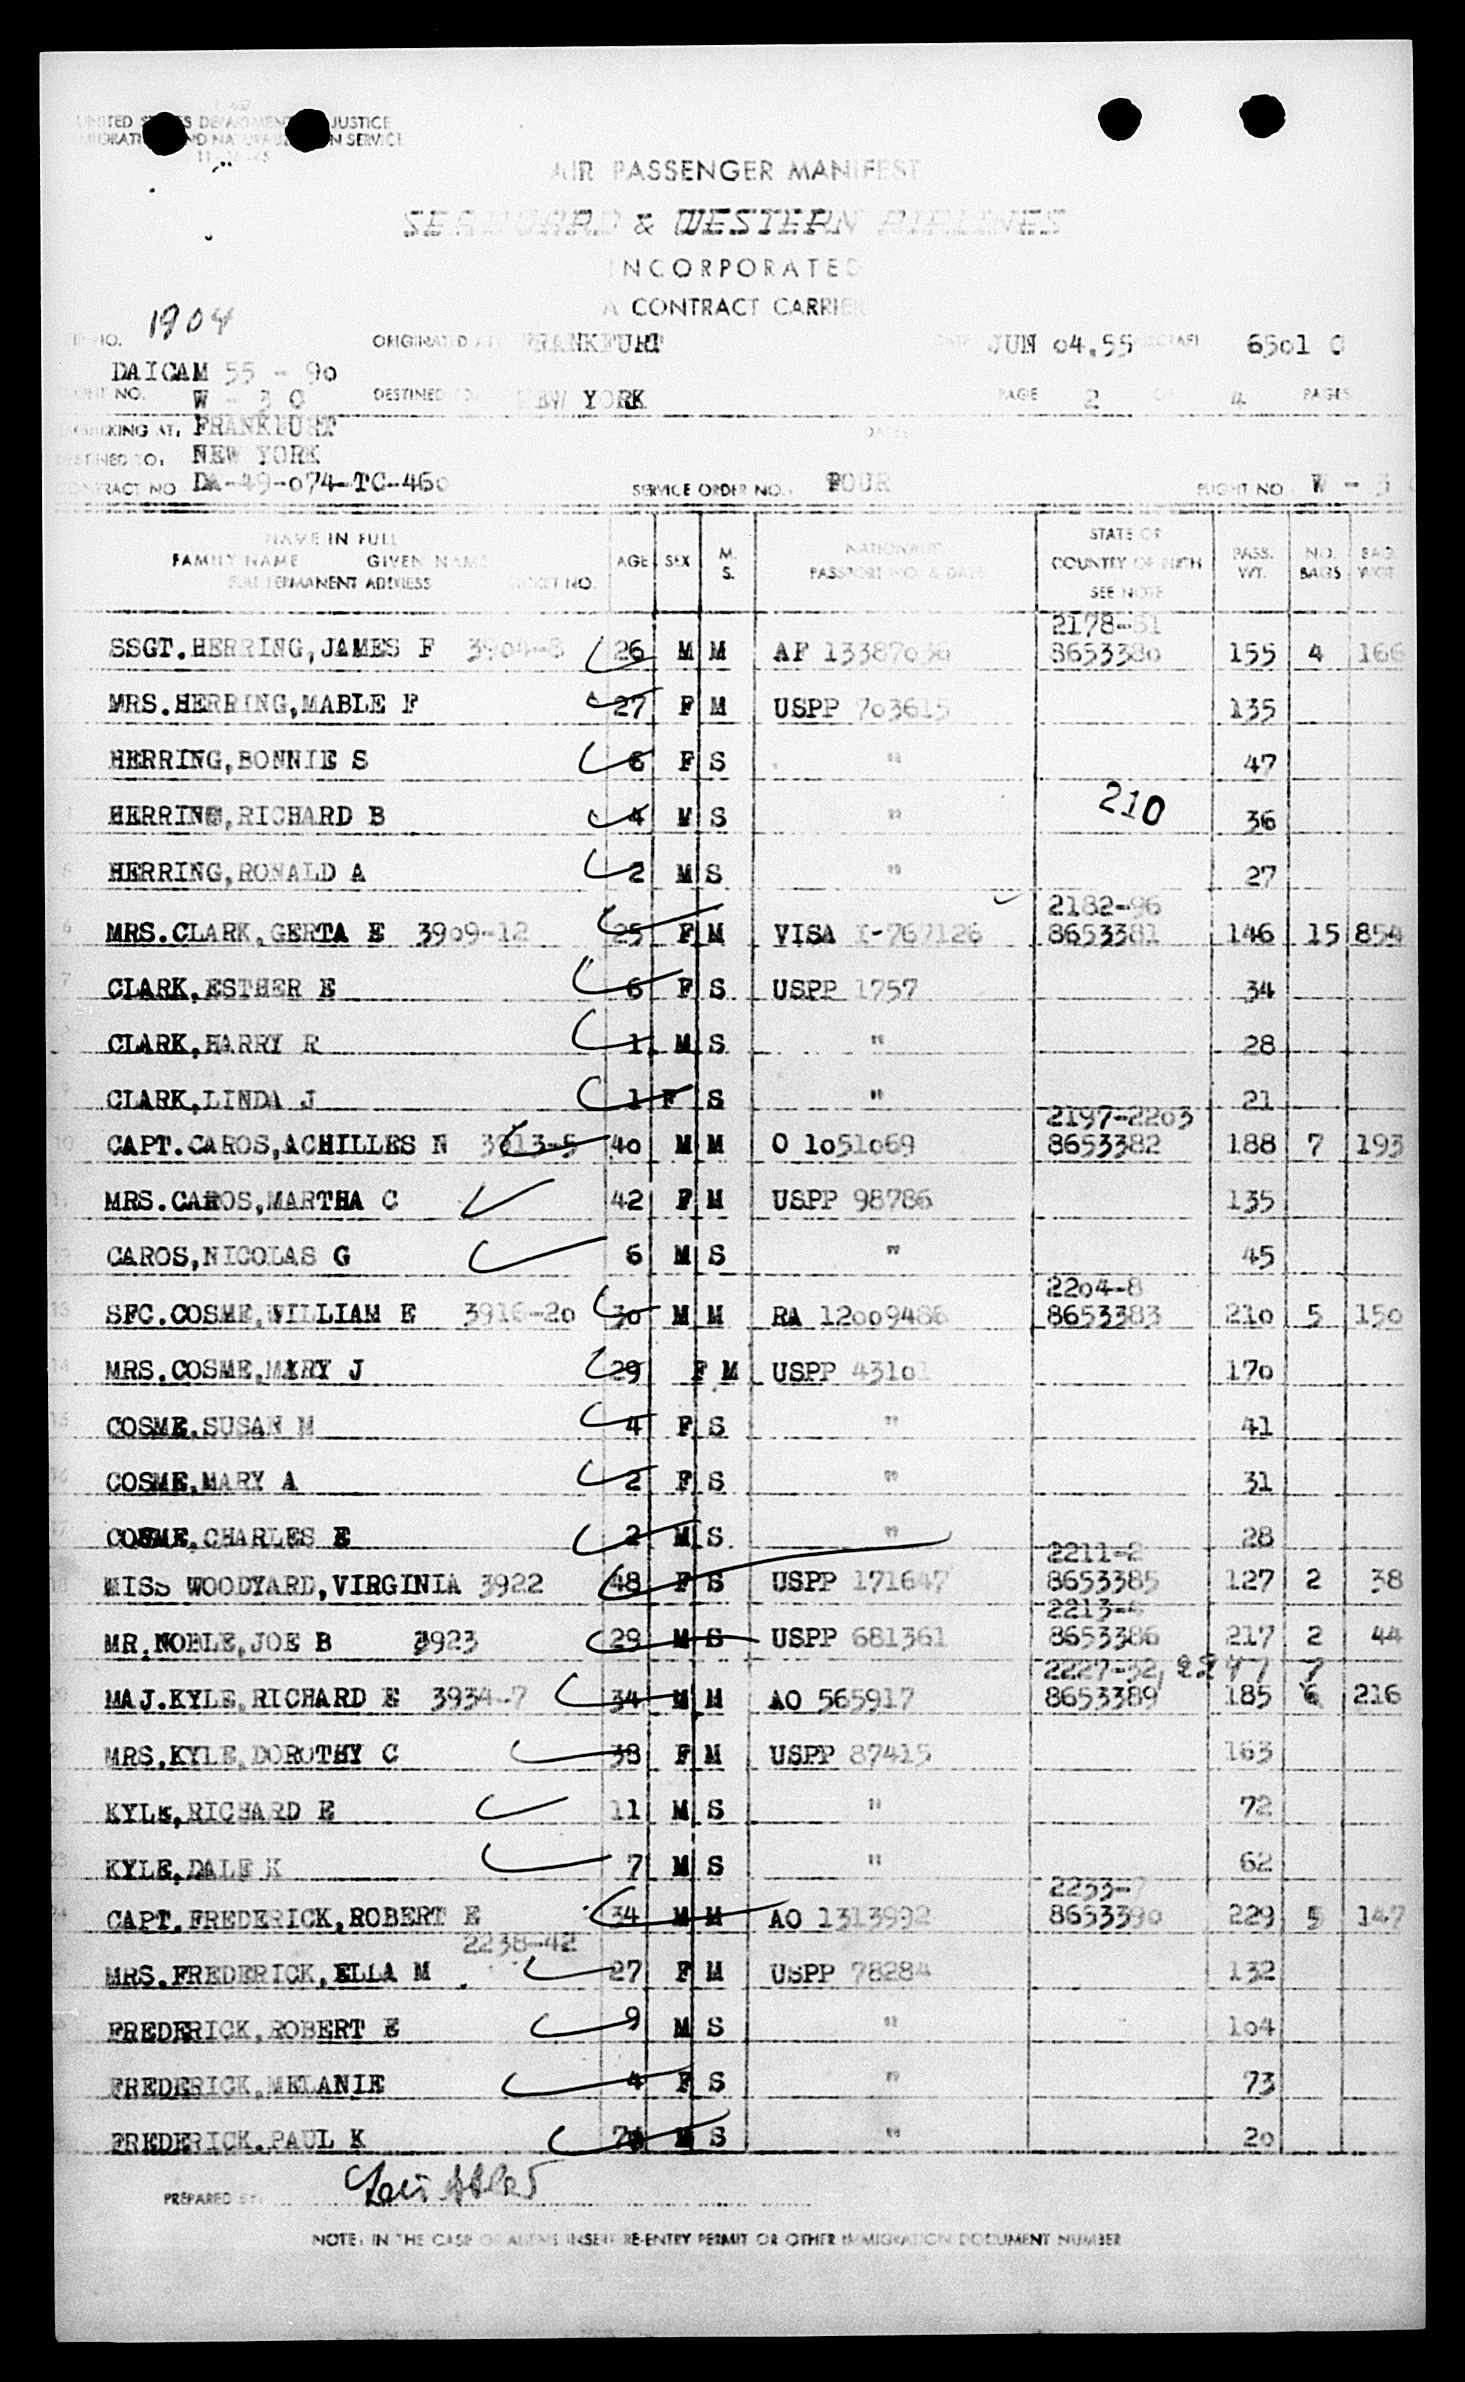 UNITED STATES DEPARTMENT OF JUSTICE
IMMIGRATION AND NATURALIZATION SERVICE
AIR PASSENGER MANIFEST
SEABOARD & WESTERN AIRLINES
INCORPORATED
A CONTRACT CARRIER
NO. 1904 ORIGINATED AT FRANKFURT DATE JUN 04.55 AIRCRAFT 6501 C
DAICAM 55 - 90
NO. W - 3 C DESTINED TO NEW YORK PAGE 2 OF 4 PAGES
EMBARKING AT. FRANKFURT DATE
DESTINED TO. NEW YORK
CONTRACT NO DA-49-074-TC-460 SERVICE ORDER NO. FOUR FLIGHT NO W - 3
NAME IN FULL
FAMILY NAME GIVEN NAME
FULL PERMANENT ADDRESS TICKET NO.
AGE SEX M. S.
NATIONALITY
PASSPORT NO. & DATE
STATE OR
COUNTRY OF BIRTH
SEE NOTE
PASS. WT. NO. BAGS BAG. WGT
2178-81
SSGT.HERRING,JAMES F 3904-8 26 M M AF 13387036 8653380 155 4 166
MRS.HERRING,MABLE F 27 F M USPP 703615 135
HERRING,BONNIE S 6 F S " 47
210
4 HERRING,RICHARD B 4 M S " 36
HERRING,RONALD A 2 M S " 27
2182-96
6 MRS.CLARK,GERTA E 3909-12 25 F M VISA I-767126 8653381 146 15 854
7 CLARK,ESTHER E 6 F S USPP 1757 34
CLARK,HARRY R 1 M S " 28
9 CLARK,LINDA J 1 F S " 21
2197-2203
10 CAPT.CAROS,ACHILLES N 3913-5 40 M M O 1051069 8653382 188 7 193
11 MRS.CAROS,MARTHA C 42 F M USPP 98786 135
CAROS,NICOLAS G 6 M S " 45
2204-8
13 SFC.COSME,WILLIAM E 3916-20 30 M M RA 12009486 8653383 210 5 150
14 MRS.COSME,MARY J 29 F M USPP 43101 170
15 COSME,SUSAN M 4 F S " 41
16 COSME,MARY A 2 F S " 31
17 COSME,CHARLES E 2 M S " 28
2211-2
18 MISS WOODYARD,VIRGINIA 3922 48 F S USPP 171647 8653385 127 2 38
2213-4
MR.NOBLE,JOE B 3923 29 M S USPP 681361 8653386 217 2 44
2227-32, 2247 7
20 MAJ.KYLE,RICHARD E 3934-7 34 M M AO 565917 8653389 185 6 216
MRS.KYLE,DOROTHY C 38 F M USPP 87415 163
22 KYLE,RICHARD E 11 M S " 72
23 KYLE,DALE K 7 M S " 62
2233-7
24 CAPT.FREDERICK,ROBERT E 34 M M AO 1313992 8653390 229 5 147
2238-42
MRS.FREDERICK,ELLA M 27 F M USPP 78284 132
FREDERICK,ROBERT E 9 M S " 104
FREDERICK,MELANIE 4 F S " 73
FREDERICK.PAUL K M S " 20
PREPARED BY:
NOTE: IN THE CASE OF ALIENS INSERT RE-ENTRY PERMIT OR OTHER IMMIGRATION DOCUMENT NUMBER